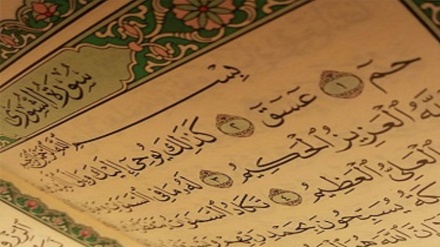 سُورَةُ الشُّورَىٰ
بِسْ
حمٓ ١ عٓسٓقٓ ٢ كَذَٰلِكَ يُوحِىٓ إِلَيْكَ وَإِلَى
ٱلْعَزِيزُ ٱلْحَكِيمُ ٣ لَهُۥ مَا فِى ٱلسَّمَٰوَٰتِ
ٱلْعَلِىُّ ٱلْعَظِيمُ ٤ تَكَادُ ٱلسَّمَٰوَٰتُ
يُسَبِّحُونَ بِحَمْدِ رَبِّهِمْ